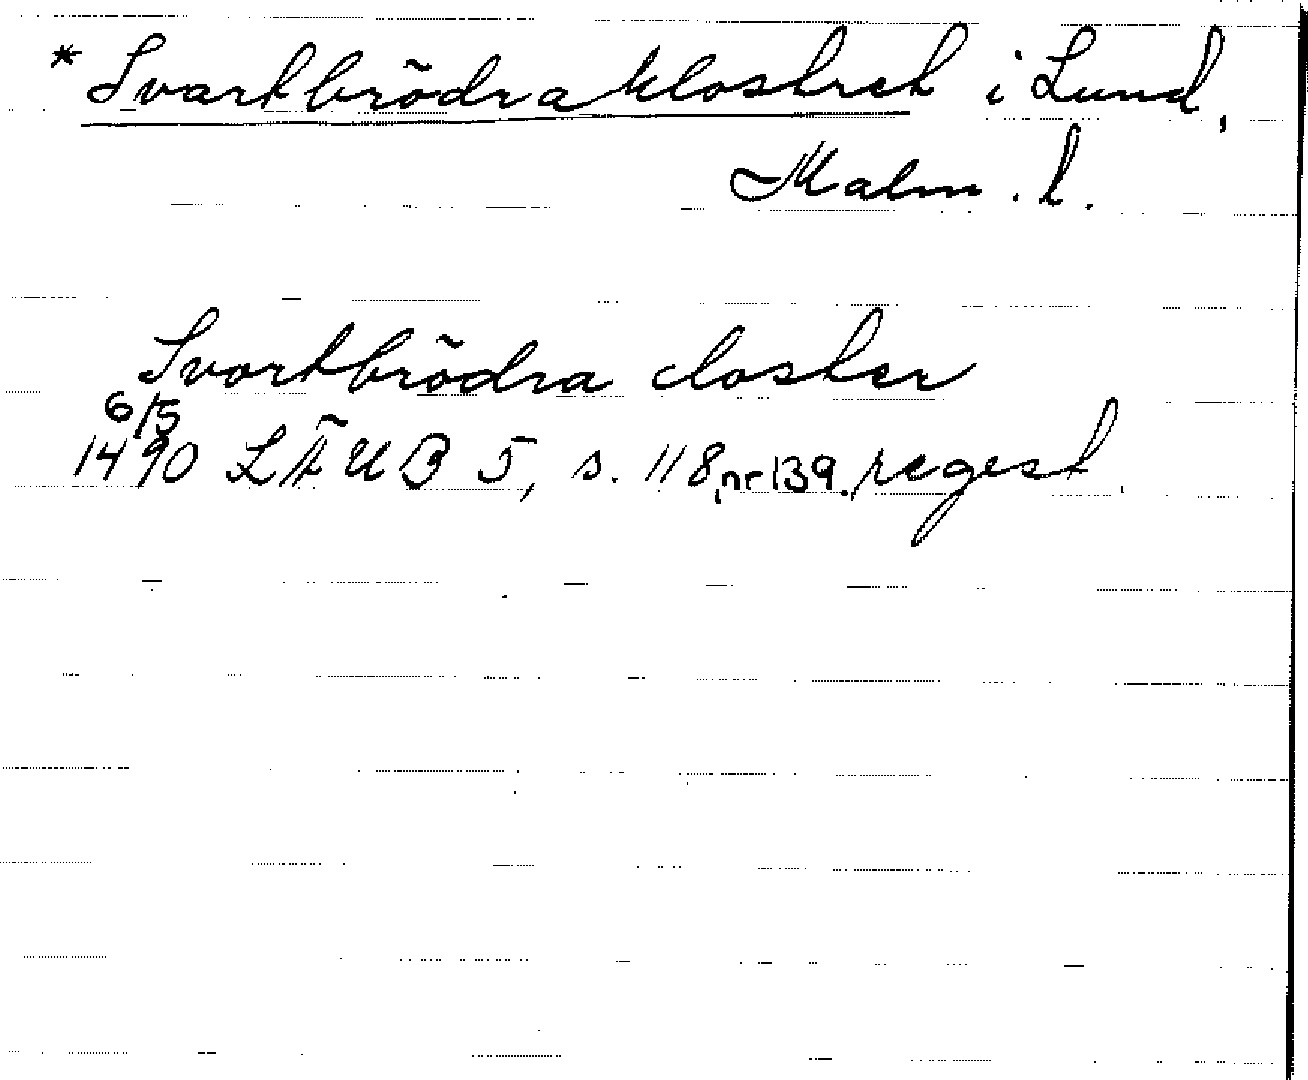 * Svartbrödraklostret i Lund,
Malm. l.
Svortbrödra closter
6/5
1490 LÄUB 5, s. 118, nr 139., regest